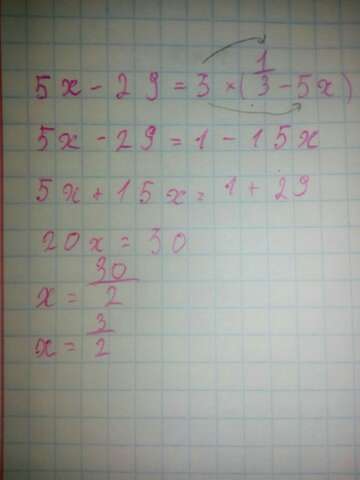 5x - 29 = 3 × (1/3 - 5x)
5x - 29 = 1 - 15x
5x + 15x = 1 + 29
20x = 30
x = 30/2
x = 3/2